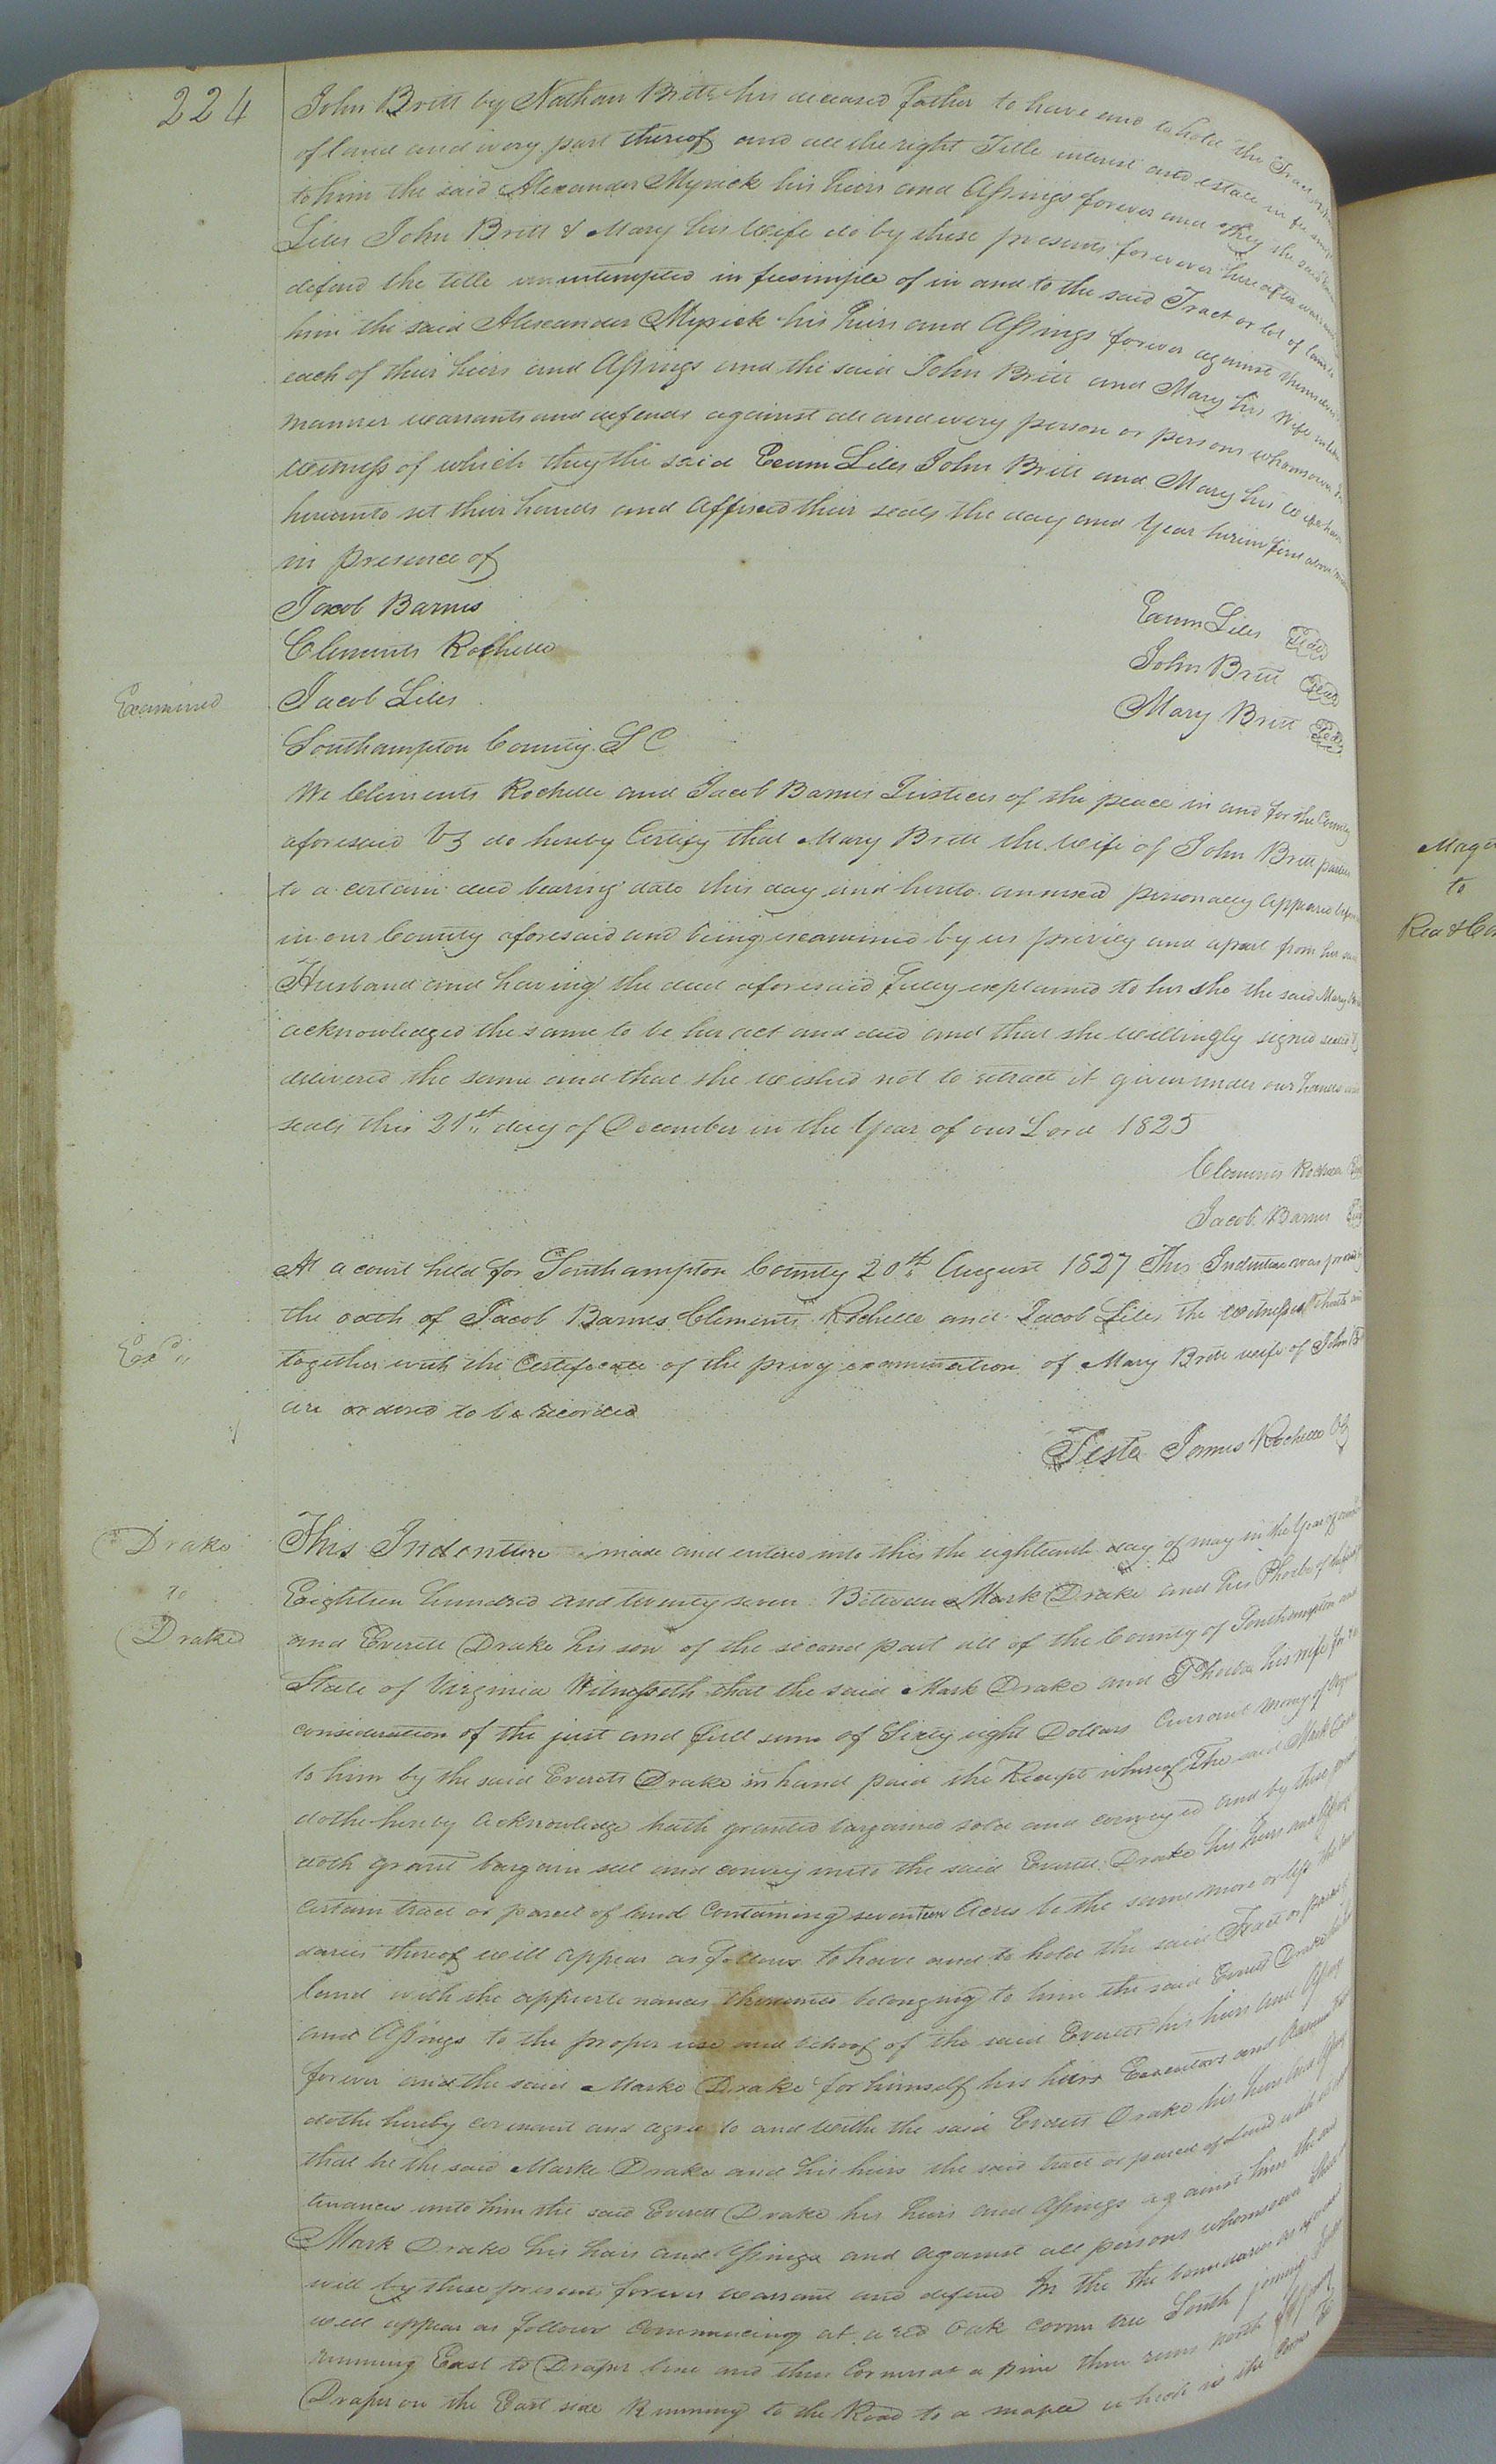 224
John Britt by Nathan Britt his deceased Father to have and to hold the Tract
of land and every part thereof and all the right Title interest and estate in fee simple
to him the said Alexander Myrick his heirs and Assings forever and they the said
Liles John Britt & Mary his Wife do by these presents forever hereafter warrant
defend the title uninterupted in feesimple of in and to the said Tract or lot of land
him the said Alexander Myrick his heirs and Assings forever against themselves
each of their heirs and Assings and the said John Britt and Mary his Wife
manner warrants and defends against all and every person or persons whomsoever
witness of which they the said Exum Liles John Britt and Mary his Wife have
hereunto set their hands and Affixed their seals the day and Year herein first above
in presence of
Jacob Barnes
Clements Rochelle
Jacob Liles
Exum Liles Seal
John Britt Seal
Mary Britt Seal
Examined
Southampton County S C
We Clements Rochelle and Jacob Barnes Justices of the peace in and for the County
aforesaid Va do hereby Certify that Mary Britt the Wife of John Britt parties
to a certain deed bearing date this day and hereto annexed personally Appeared before
in our County aforesaid and being examined by us privily and apart from her said
Husband and having the deed aforesaid fully explained to her she the said Mary Britt
acknowledged the same to be her act and deed and that she willingly signed sealed &
delivered the same and that she wished not to retract it given under our hands and
seals this 21st day of December in the Year of our Lord 1825
Clements Rochelle Seal
Jacob Barnes Seal
At a court held for Southampton County 20th August 1827 This Indenture was proved by
the oath of Jacob Barnes Clements Rochelle and Jacob Liles the witnesses thereto and
together with the Certificate of the privy examination of Mary Britt wife of John
are ordered to be recorded
Exd
Teste James Rochelle
Drake
to
Drake
This Indenture made and entered into this the eighteenth day of may in the Year of
Eighteen hundred and twenty seven Between Mark Drake and his Phoebe of the first
and Everett Drake his son of the second part all of the County of Southampton and
State of Virginia Witnesseth that the said Mark Drake and Phoebe his wife for
consideration of the just and full sum of Sixty eight Dollars Currant money of
to him by the said Everett Drake in hand paid the Receipt whereof The said Mark
dothe hereby acknowledge hath granted bargained sold and conveyed and by these
doth grant bargain sell and convey unto the said Everett Drake his heirs and
certain tract or parcel of land Containing seventeen Acres be the same more or less the
daries thereof will appear as follows to have and to hold the said Tract or
land with the appurtenances thereunto belonging to him the said Everett Drake
and Assings to the proper use and behoof of the said Everett his heirs and
forever and the said Marke Drake for himself his heirs Executors and
dothe hereby covenant and agree to and withe the said Everett Drake his heirs and
that he the said Marke Drake and his heirs the said tract or parcel of Land with
tenances unto him the said Everett Drake his heirs and Assings against him the
Mark Drake his heirs and Assings and against all persons whomsoever shall
will by these presents forever warrant and defend In the the boundaries as
will appear as follows Commencing at a red oak corner tree South joining
running East to Draper line and then Corners at a pine then runs north
Draper on the East side Running to the Road to a maple which is the